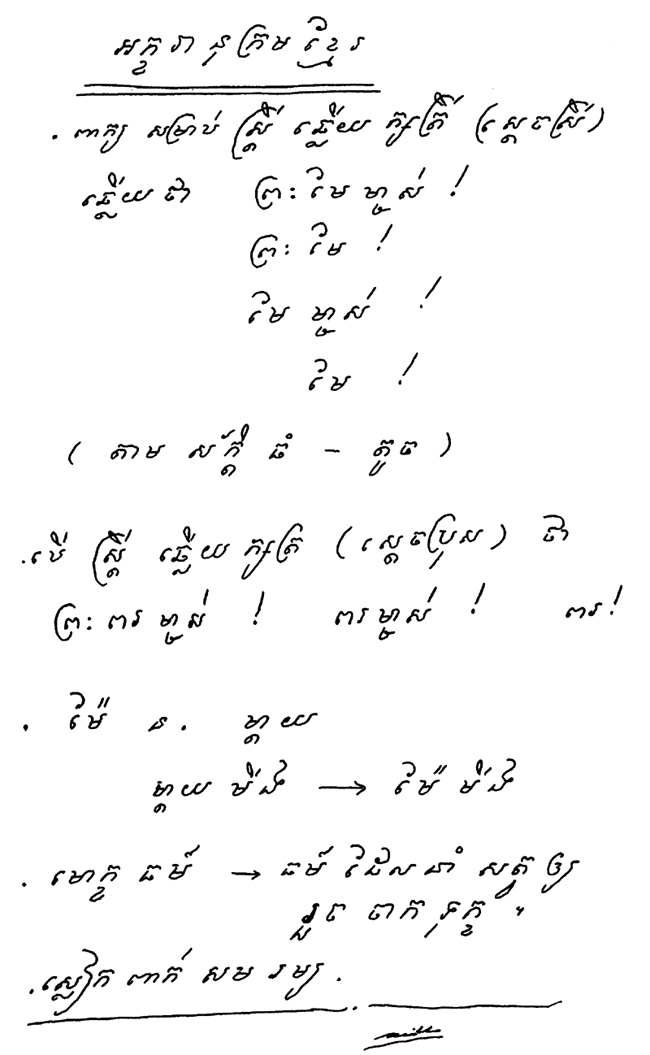 អក្ខរានុក្រមខ្មែរ
. ពាក្យ សម្រាប់ ស្ត្រី ឆ្លើយ ក្សត្រី (ស្ដេចស្រី)
ឆ្លើយថា ព្រះ ម៉ែ ម្ចាស់ !
ព្រះ ម៉ែ !
ម៉ែ ម្ចាស់ !
ម៉ែ !
( តាម ស័ក្ដិ ធំ – តូច )
. បើ ស្ត្រី ឆ្លើយ ក្សត្រ (ស្ដេចប្រុស) ថា
ព្រះ ពរ ម្ចាស់ ! ពរ ម្ចាស់ ! ពរ !
. ម៉ែ ន. ម្ដាយ
ម្ដាយ មីង → ម៉ែ មីង
. មោក្ខ ធម៌ → ធម៌ ដែល នាំ សត្វ ឲ្យ
រួច ចាក ទុក្ខ ។
. ស្លៀក ពាក់ សម រម្យ .